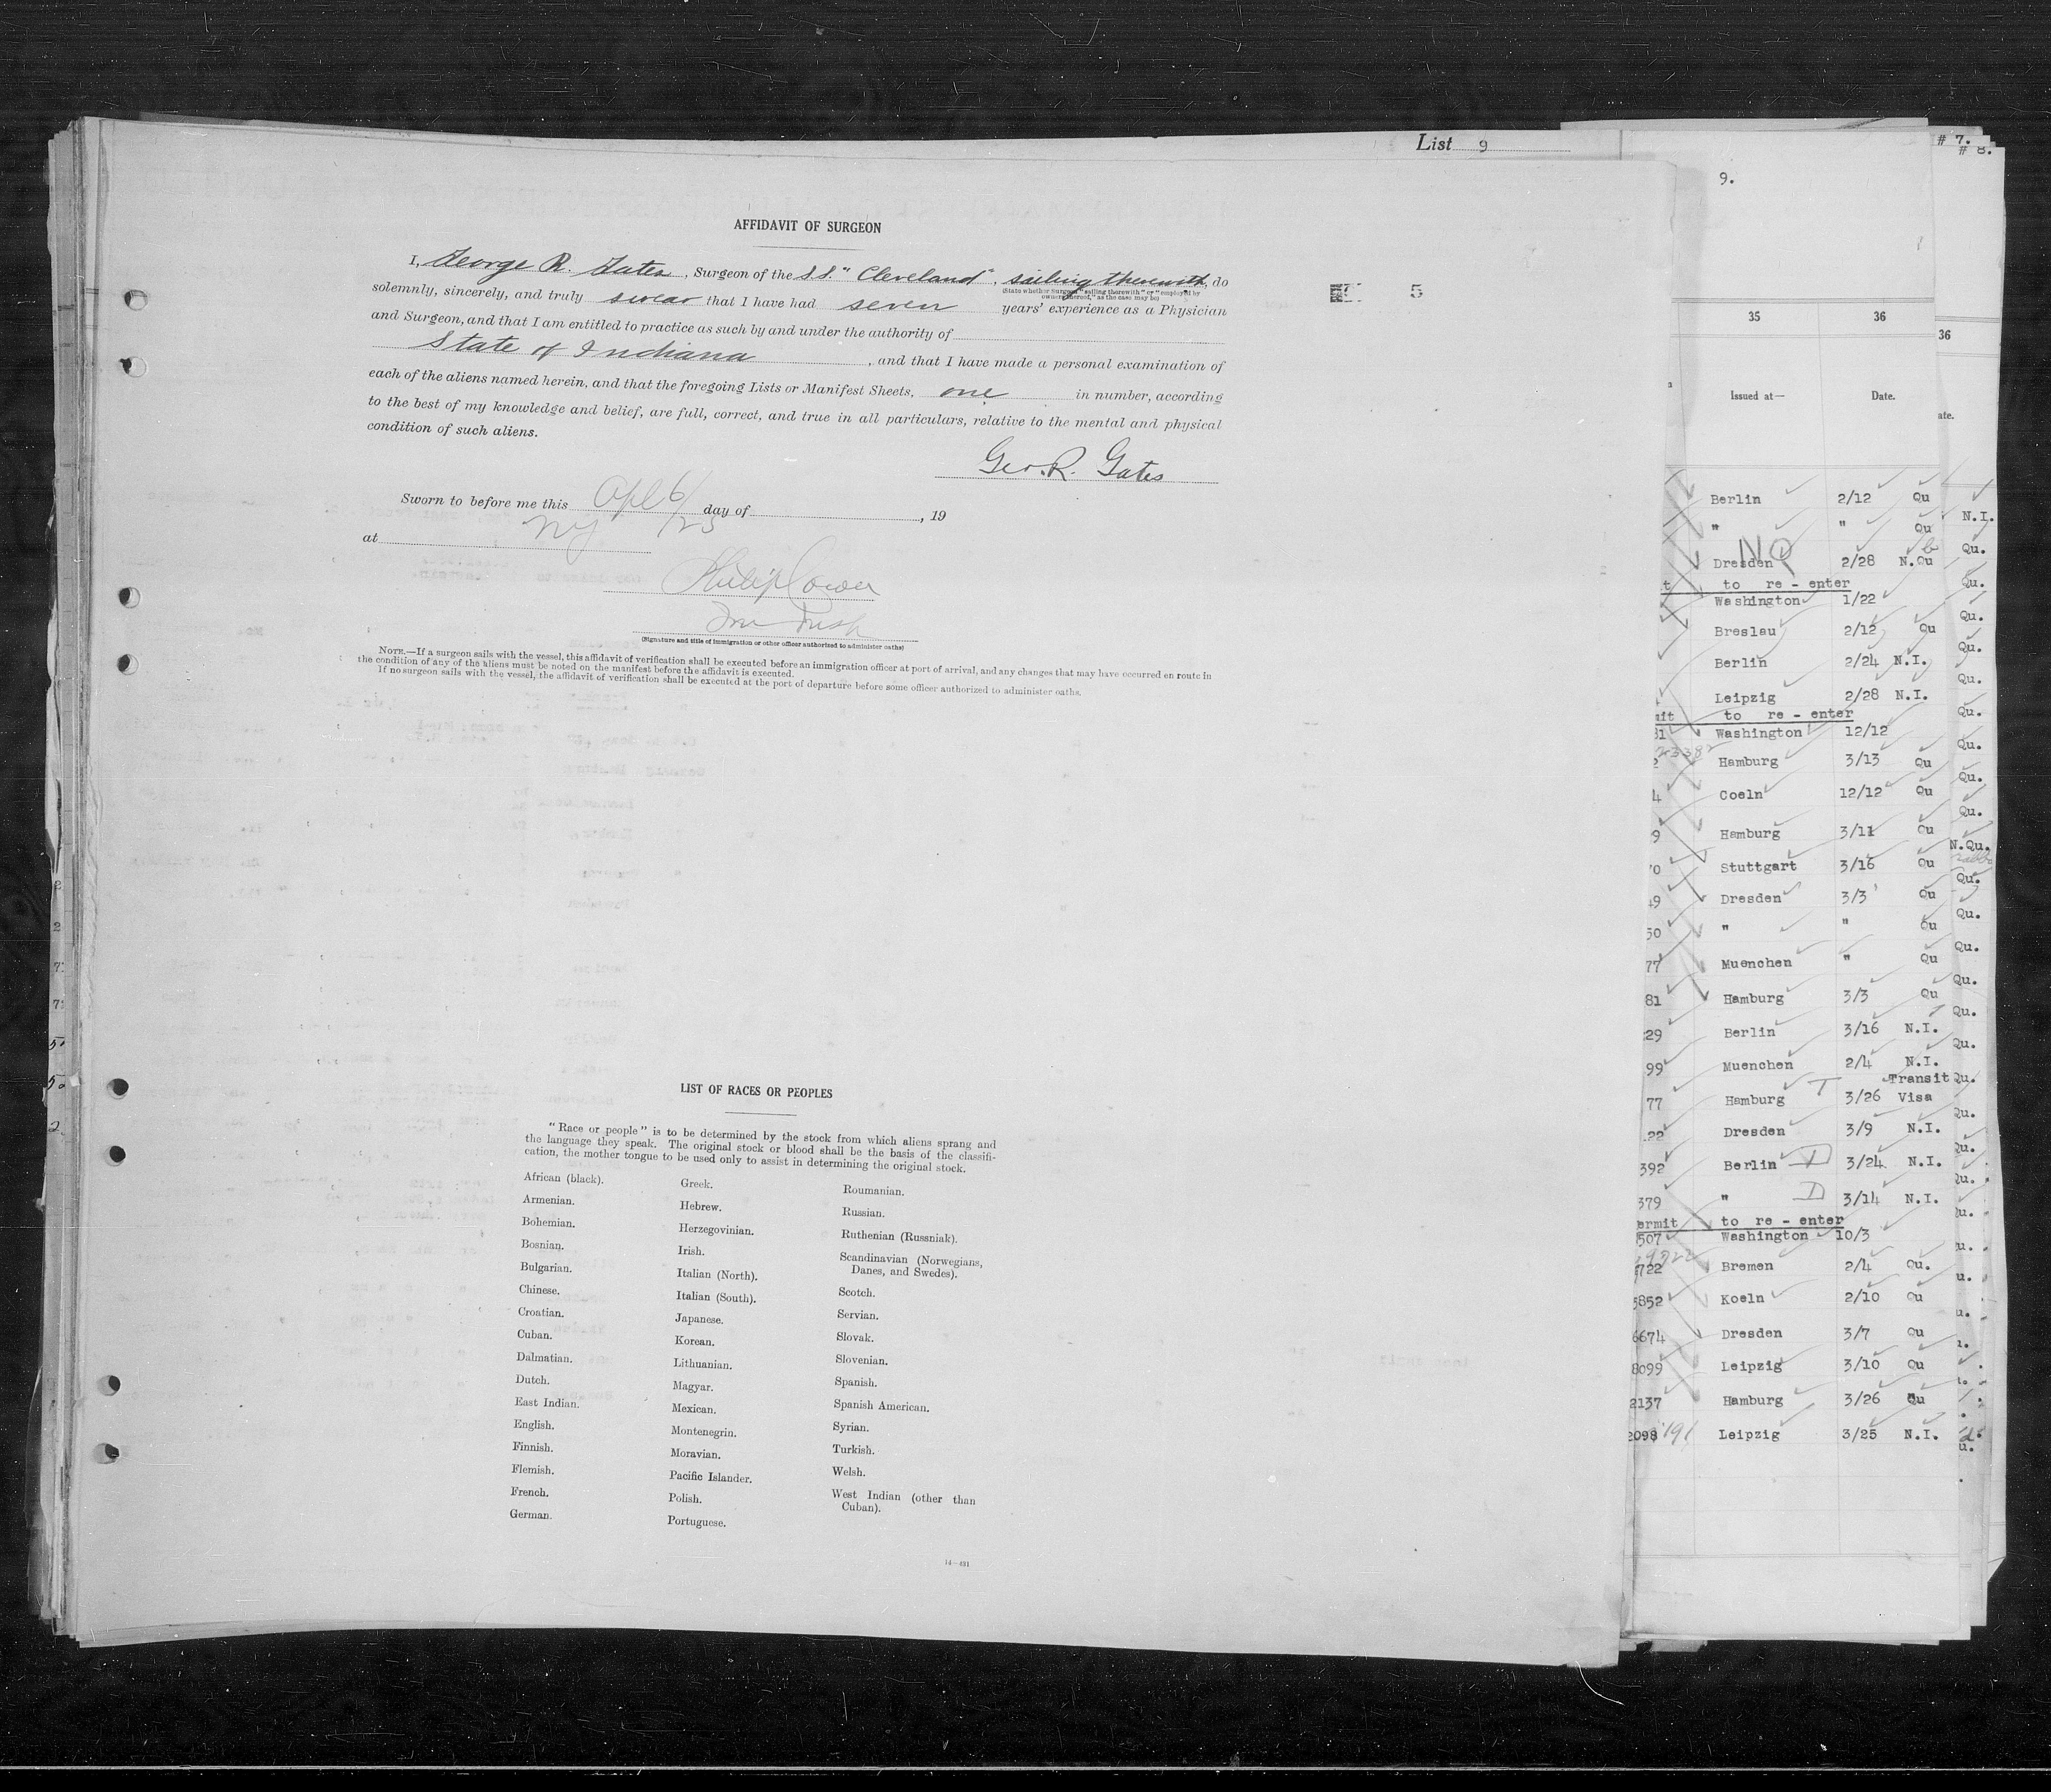 List 9
# 7.
# 8.
9.
AFFIDAVIT OF SURGEON
I, George R. Gates, Surgeon of the S.S. "Cleveland", sailing therewith, do
(State whether Surgeon "sailing therewith" or "employed by
owners thereof," as the case may be)
solemnly, sincerely, and truly swear that I have had seven years' experience as a Physician
and Surgeon, and that I am entitled to practice as such by and under the authority of
State of Indiana, and that I have made a personal examination of
each of the aliens named herein, and that the foregoing Lists or Manifest Sheets, one in number, according
to the best of my knowledge and belief, are full, correct, and true in all particulars, relative to the mental and physical
condition of such aliens.
5
Geo. R. Gates
Sworn to before me this Apl 6/ day of , 19
at NY /23
Philip Cowen
(Signature and title of immigration or other officer authorized to administer oaths)
NOTE.—If a surgeon sails with the vessel, this affidavit of verification shall be executed before an immigration officer at port of arrival, and any changes that may have occurred en route in
the condition of any of the aliens must be noted on the manifest before the affidavit is executed.
If no surgeon sails with the vessel, the affidavit of verification shall be executed at the port of departure before some officer authorized to administer oaths.
LIST OF RACES OR PEOPLES
"Race or people" is to be determined by the stock from which aliens sprang and
the language they speak. The original stock or blood shall be the basis of the classifi-
cation, the mother tongue to be used only to assist in determining the original stock.
African (black).
Armenian.
Bohemian.
Bosnian.
Bulgarian.
Chinese.
Croatian.
Cuban.
Dalmatian.
Dutch.
East Indian.
English.
Finnish.
Flemish.
French.
German.
Greek.
Hebrew.
Herzegovinian.
Irish.
Italian (North).
Italian (South).
Japanese.
Korean.
Lithuanian.
Magyar.
Mexican.
Montenegrin.
Moravian.
Pacific Islander.
Polish.
Portuguese.
Roumanian.
Russian.
Ruthenian (Russniak).
Scandinavian (Norwegians,
Danes, and Swedes).
Scotch.
Servian.
Slovak.
Slovenian.
Spanish.
Spanish American.
Syrian.
Turkish.
Welsh.
West Indian (other than
Cuban).
14—431
35 36
36
Issued at— Date.
ate.
Berlin 2/12 Qu
" " Qu
NQ
Dresden 2/28 N.Qu
to re - enter
Washington 1/22
Breslau 2/12 Qu
Berlin 2/24 N.I.
Leipzig 2/28 N.I.
mit to re - enter
81 Washington 12/12
2 Hamburg 3/13 Qu
4 Coeln 12/12 Qu
9 Hamburg 3/11 Qu
70 Stuttgart 3/16 Qu
49 Dresden 3/3 Qu
50 " " Qu
77 Muenchen " Qu
81 Hamburg 3/3 Qu
29 Berlin 3/16 N.I.
99 Muenchen 2/4 N.I.
Transit
77 Hamburg T 3/26 Visa
22 Dresden 3/9 N.I.
392 Berlin D 3/24 N.I.
379 " D 3/14 N.I.
ermit to re - enter
507 Washington 10/3
722 Bremen 2/4 Qu.
5852 Koeln 2/10 Qu
6674 Dresden 3/7 Qu
8099 Leipzig 3/10 Qu
2137 Hamburg 3/26 Qu
2098 191 Leipzig 3/25 N.I.
N.I.
Qu.
Qu.
Qu.
Qu.
Qu.
Qu.
Qu.
Qu.
Qu.
N.Qu.
Qu.
Qu.
Qu.
Qu.
Qu.
Qu.
Qu.
Qu.
Qu.
Qu.